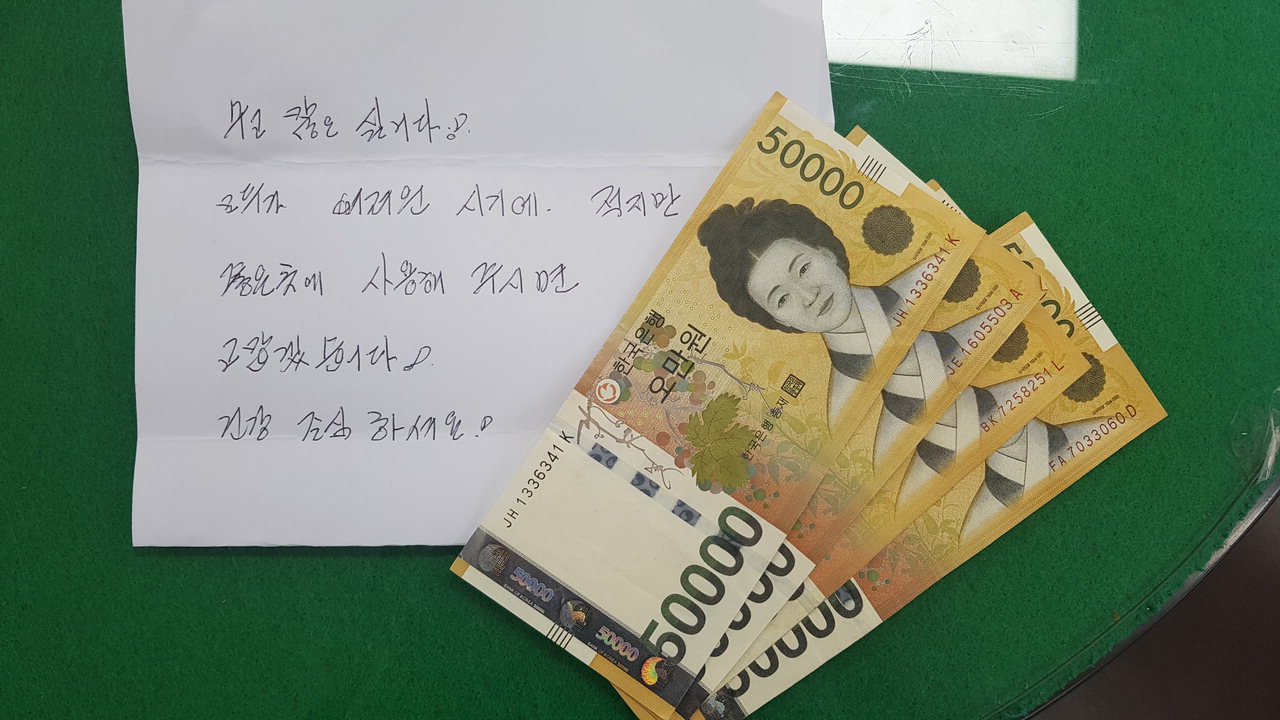 수고 많은 십니다.
모두가 어려운 시기에. 적지만
좋은곳에 사용해 주시면
고맙겠 듭니다.
건강 조심 하세요.
50000
한국은행
오만원
한국은행 총재
JH 1336341 K
JH 1336341 K
50000
50000
50000
JE 1605503 A
BK 7258251 L
FA 7033060 D
50000